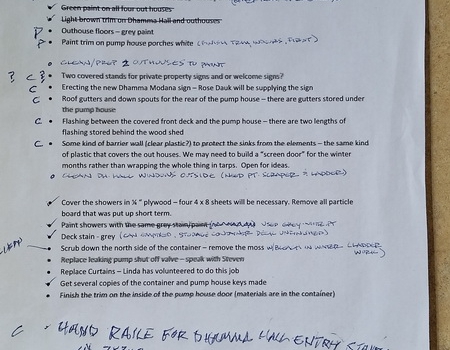 ✓ • Green paint on all four out houses
✓ • Light brown trim on Dhamma Hall and outhouses
P • Outhouse floors – grey paint
P • Paint trim on pump house porches white (FINISH TRIM, FIRST)
o CLEAN/PREP 2 OUTHOUSES TO PAINT
? C ? • Two covered stands for private property signs and or welcome signs?
C • Erecting the new Dhamma Modana sign – Rose Dauk will supply the sign
C • Roof gutters and down spouts for the rear of the pump house – there are gutters stored under
the pump house
C • Flashing between the covered front deck and the pump house – there are two lengths of
flashing stored behind the wood shed
C • Some kind of barrier wall (clear plastic?) to protect the sinks from the elements – the same kind
of plastic that covers the out houses. We may need to build a "screen door" for the winter
months rather than wrapping the whole thing in tarps. Open for ideas.
o CLEAN DH. HALL WINDOWS OUTSIDE (NEED PT. SCRAPER & LADDER)
✓ • Cover the showers in ¼ " plywood – four 4 x 8 sheets will be necessary. Remove all particle
board that was put up short term.
✓ • Paint showers with the same grey stain/paint USED GREY
✓ • Deck stain - grey (STORAGE CONTAINER DECK UNFINISHED)
• Scrub down the north side of the container – remove the moss W/BLEACH IN WATER (LADDER
WORK)
• Replace leaking pump shut off valve – speak with Steven
• Replace Curtains – Linda has volunteered to do this job
✓ • Get several copies of the container and pump house keys made
• Finish the trim on the inside of the pump house door (materials are in the container)
C • HAND RAILS FOR DHAMMA HALL ENTRY